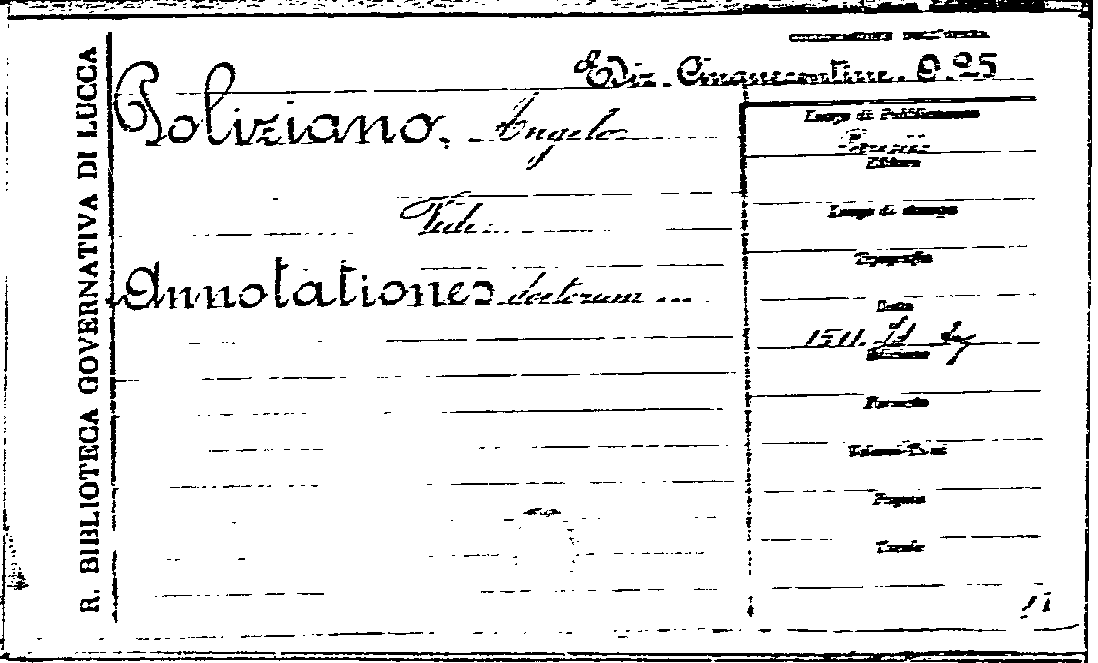 R. BIBLIOTECA GOVERNATIVA DI LUCCA
Ediz. Cinquecentine. 9.25
Poliziano, Angelo
Vedi
Annotationes doctorum ...
Luogo di Pubblicazione
Editore
Luogo di stampa
Tipografia
Data
1511.
Edizione
Formato
Volumi-Tomi
Pagine
Tavole